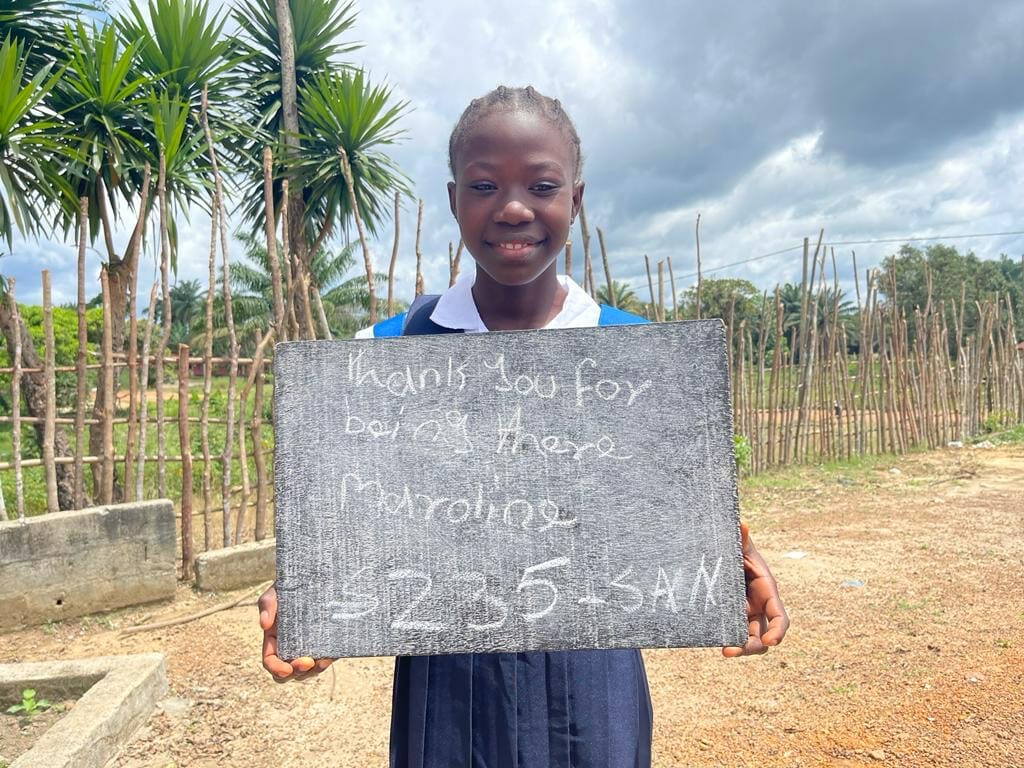 Thank You for
being there
Maroline
S235-SAN